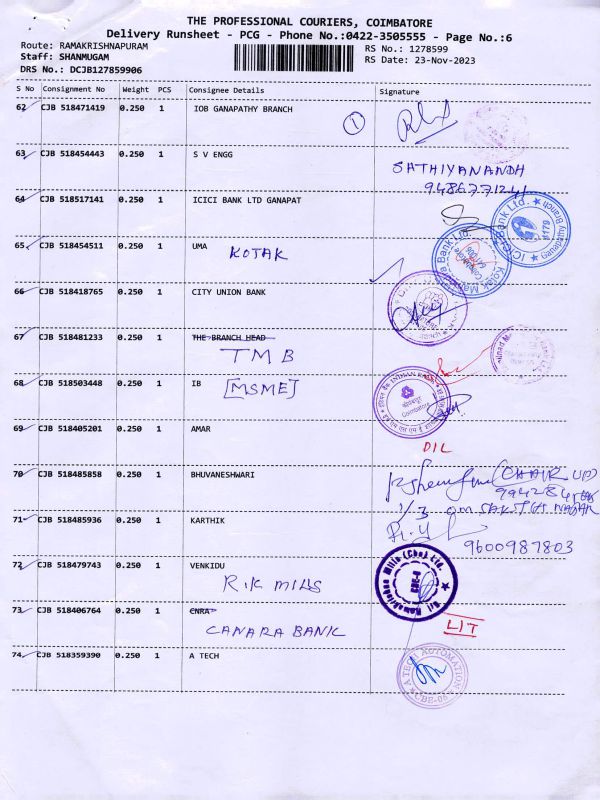 THE PROFESSIONAL COURIERS, COIMBATORE
Delivery Runsheet - PCG - Phone No.:0422-3505555 - Page No.:6
Route: RAMAKRISHNAPURAM
RS No.: 1278599
Staff: SHANMUGAM
RS Date: 23-Nov-2023
DRS No.: DCJB127859906
S No Consignment No Weight PCS Consignee Details Signature
62 CJB 518471419 0.250 1 IOB GANAPATHY BRANCH 1
63 CJB 518454443 0.250 1 S V ENGG
SATHIYANANDH
9486771241
64 CJB 518517141 0.250 1 ICICI BANK LTD GANAPAT
ICICI Bank Ltd. Ganapathy Branch
65 CJB 518454511 0.250 1 UMA
KOTAK
66 CJB 518418765 0.250 1 CITY UNION BANK
67 CJB 518481233 0.250 1 THE BRANCH HEAD
TMB
68 CJB 518503448 0.250 1 IB
[MSME]
INDIAN BANK
Coimbatore
69 CJB 518405201 0.250 1 AMAR
DIL
70 CJB 518485858 0.250 1 BHUVANESHWARI
71 CJB 518485936 0.250 1 KARTHIK
9600987803
72 CJB 518479743 0.250 1 VENKIDU
R.K MILLS
Sri Ramakrishna Mills (Cbe) Ltd.
73 CJB 518406764 0.250 1 CNRA
CANARA BANK
LIT
74 CJB 518359390 0.250 1 A TECH
A TECH AUTOMATION
CBE-06